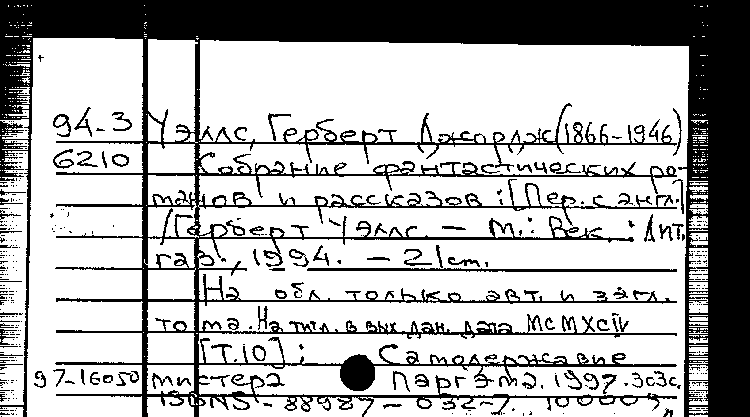 94-3 Уэллс, Герберт Джордж (1866-1946)
6210 Собрание фантастических ро-
манов и рассказов : [Пер. с англ.]
/ Герберт Уэллс. — М. : Век. : Лит.
газ., 1994. — 21 cm.
На обл. только авт. и загл.
тома. На титл. в вых. дан. дата MCMXCIV
[Т.10] : Самодержавие
97-16050 мистера Паргэма. 1997. 303с.
ISBN 5-88987-032-7.